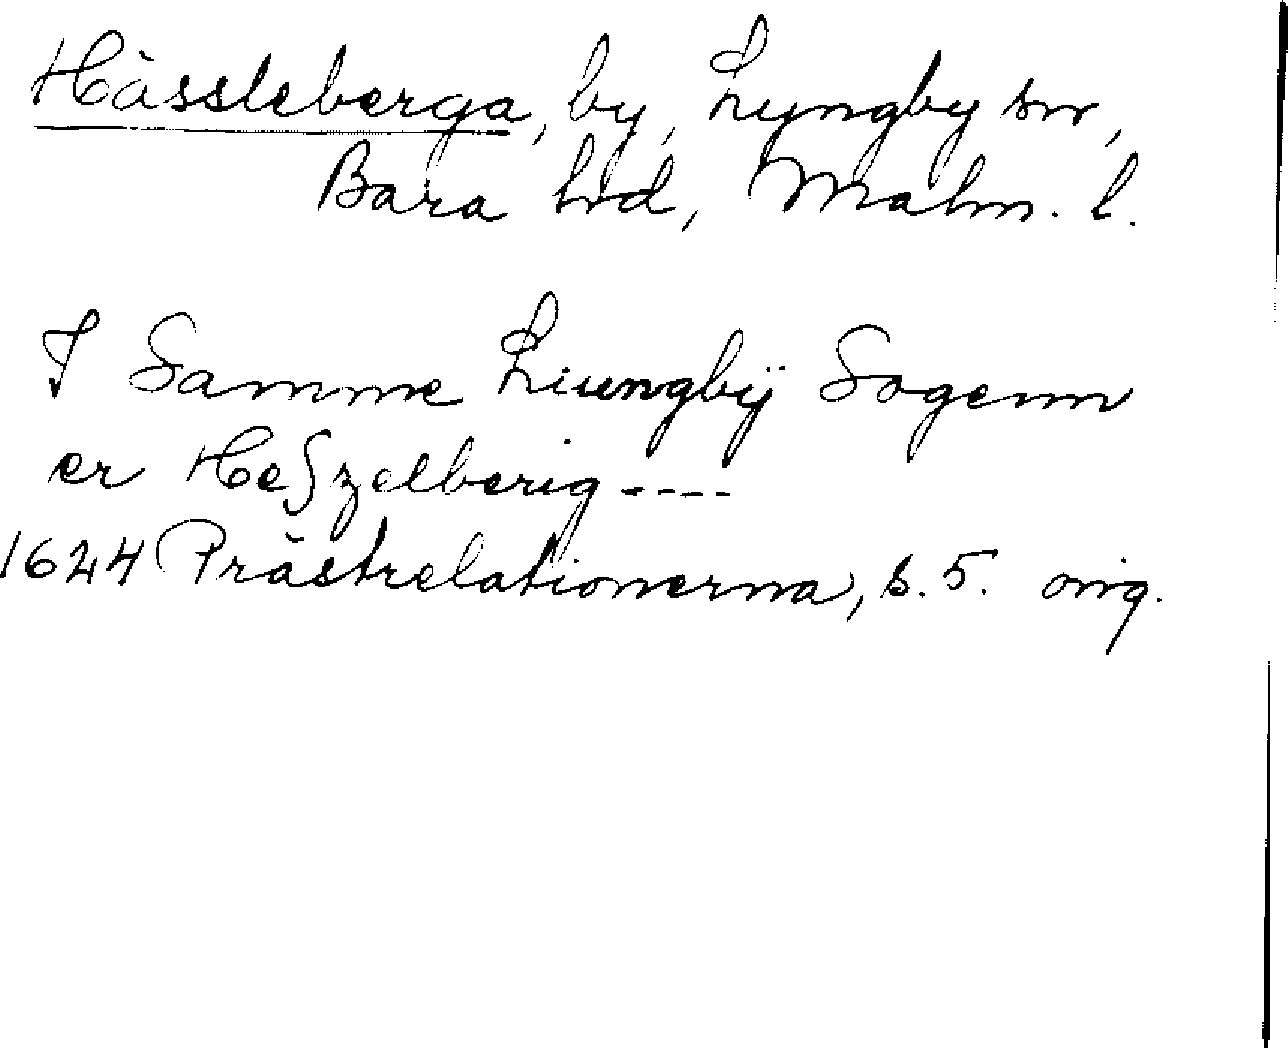 Hässleberga, by, Lyngby sn,
Bara hd, Malm. l.
I Samme Liungbÿ Sogenn
er Heſzelberig ----
1624 Prästrelationerna, s. 5. orig.